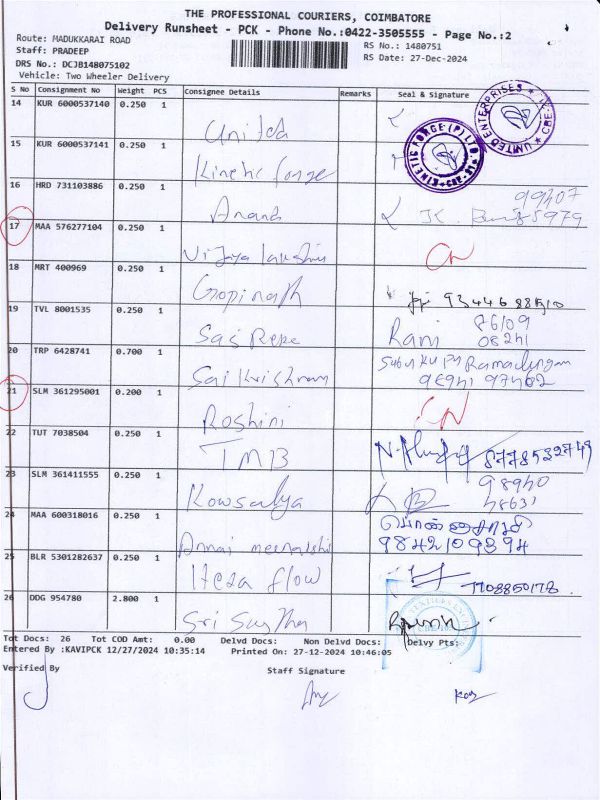 THE PROFESSIONAL COURIERS, COIMBATORE
Delivery Runsheet - PCK - Phone No.:0422-3505555 - Page No.:2
Route: MADUKKARAI ROAD
RS No.: 1480751
Staff: PRADEEP
RS Date: 27-Dec-2024
DRS No.: DCJB148075102
Vehicle: Two Wheeler Delivery
S No Consignment No Weight PCS Consignee Details Remarks Seal & Signature
14 KUR 6000537140 0.250 1 United
UNITED ENTERPRISES CBE
15 KUR 6000537141 0.250 1 Kinetic forge
KINETIC FORGE (P) LTD. CBE
16 HRD 731103886 0.250 1 Anand
99207
5979
17 MAA 576277104 0.250 1 Vijaya lakshmi
18 MRT 400969 0.250 1 Gopinath
19 TVL 8001535 0.250 1
Rani 86109
08241
20 TRP 6428741 0.700 1 Sai Krishnam
21 SLM 361295001 0.200 1 Roshini
22 TUT 7038504 0.250 1 TMB 8778532749
23 SLM 361411555 0.250 1 Kowsalya 98940
24 MAA 600318016 0.250 1 Annai meenatshi
9842109394
25 BLR 5301282637 0.250 1 Itesa flow 7708850178
26 DDG 954780 2.800 1 Sri
Tot Docs: 26 Tot COD Amt: 0.00 Delvd Docs: Non Delvd Docs: Delvy Pts:
Entered By :KAVIPCK 12/27/2024 10:35:14 Printed On: 27-12-2024 10:46:05
Verified By Staff Signature